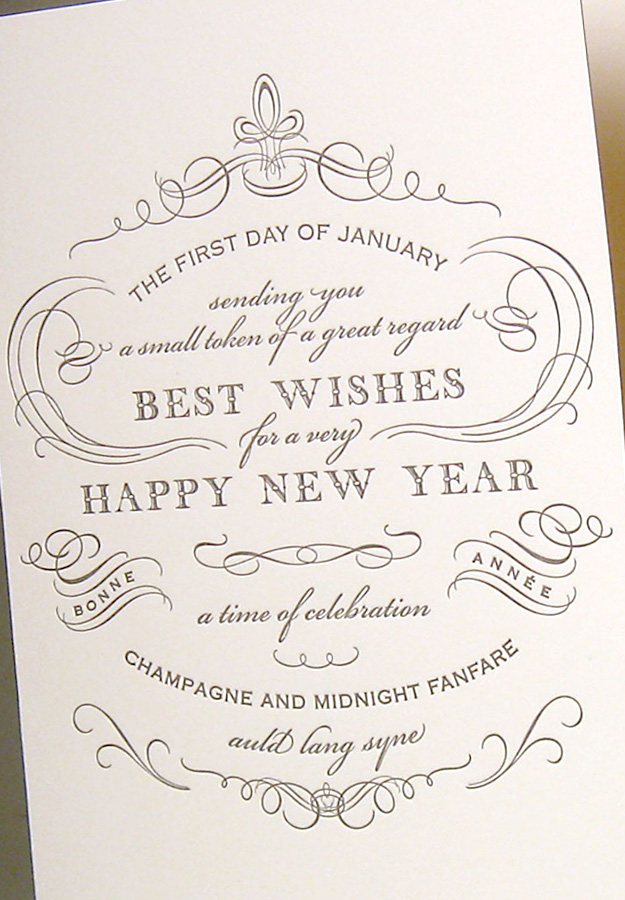 THE FIRST DAY OF JANUARY
sending you
a small token of a great regard
BEST WISHES
for a very
HAPPY NEW YEAR
BONNE
ANNÉE
a time of celebration
CHAMPAGNE AND MIDNIGHT FANFARE
auld lang syne